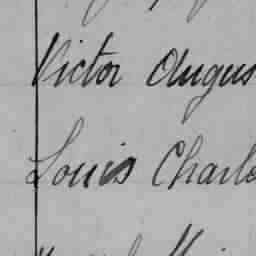 Victor Augus
Louis Charle